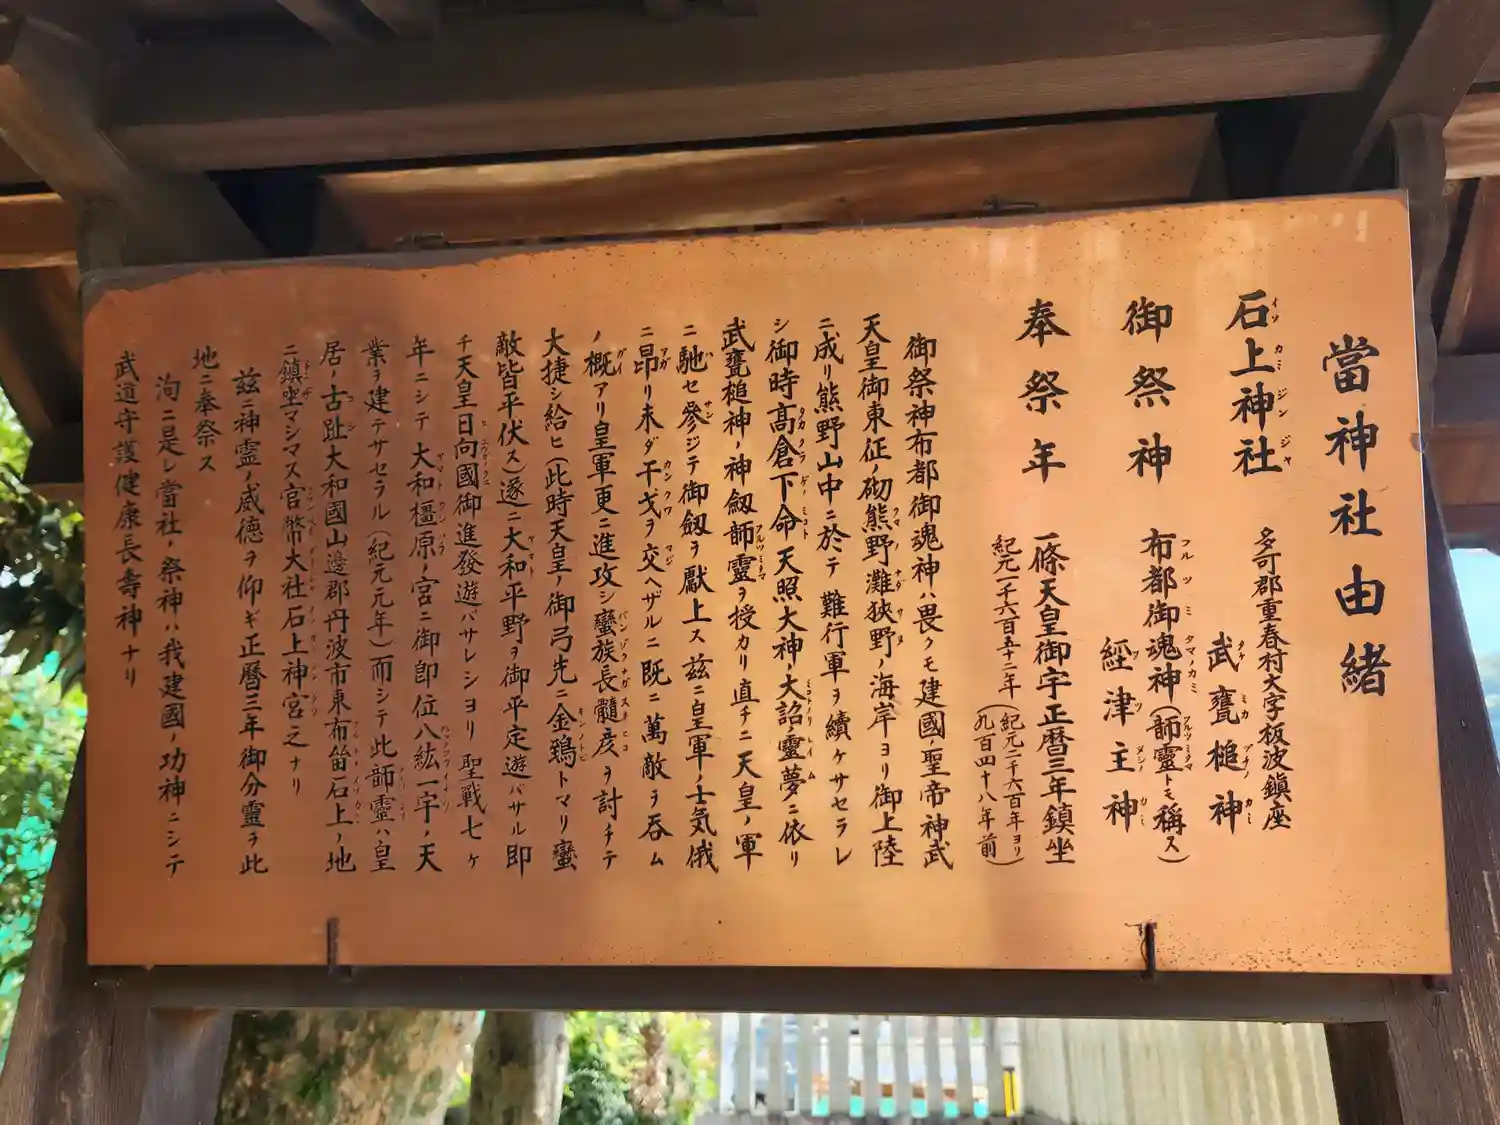 當神社由緒
石上神社 多可郡重春村大字板波鎮座
御祭神 布都御魂神(韴靈トモ稱ス) 武甕槌神
經津主神
奉祭年 一條天皇御宇正暦三年鎮坐
紀元一千六百五十二年(紀元二千六百年ヨリ九百四十八年前)
御祭神布都御魂神ハ畏クモ建國ノ聖帝神武
天皇御東征ノ砌熊野灘狹野ノ海岸ヨリ御上陸
ニ成リ熊野山中ニ於テ難行軍ヲ續ケサセラレ
シ御時高倉下命天照大神ノ大詔ノ靈夢ニ依リ
武甕槌神ノ神劔韴靈ヲ授カリ直チニ天皇ノ軍
ニ馳セ參ジテ御劔ヲ獻上ス茲ニ皇軍ノ士気俄
ニ昂リ未ダ干戈ヲ交ヘザルニ既ニ萬敵ヲ呑ム
ノ概アリ皇軍更ニ進攻シ蠻族長髓彦ヲ討チテ
大捷シ給ヒ(此時天皇ノ御弓先ニ金鵄トマリ蠻
敵皆平伏ス)遂ニ大和平野ヲ御平定遊バサル即
チ天皇日向國御進發遊バサレシヨリ聖戰七ヶ
年ニシテ大和橿原ノ宮ニ御即位八紘一宇ノ天
業ヲ建テサセラル(紀元元年)而シテ此韴靈ハ皇
居ノ古趾大和國山邊郡丹波市東布留石上ノ地
ニ鎮坐マシマス官幣大社石上神宮之ナリ
茲ニ神靈ノ威德ヲ仰ギ正暦三年御分靈ヲ此
地ニ奉祭ス
洵ニ是レ當社ノ祭神ハ我建國ノ功神ニシテ
武道守護健康長壽神ナリ